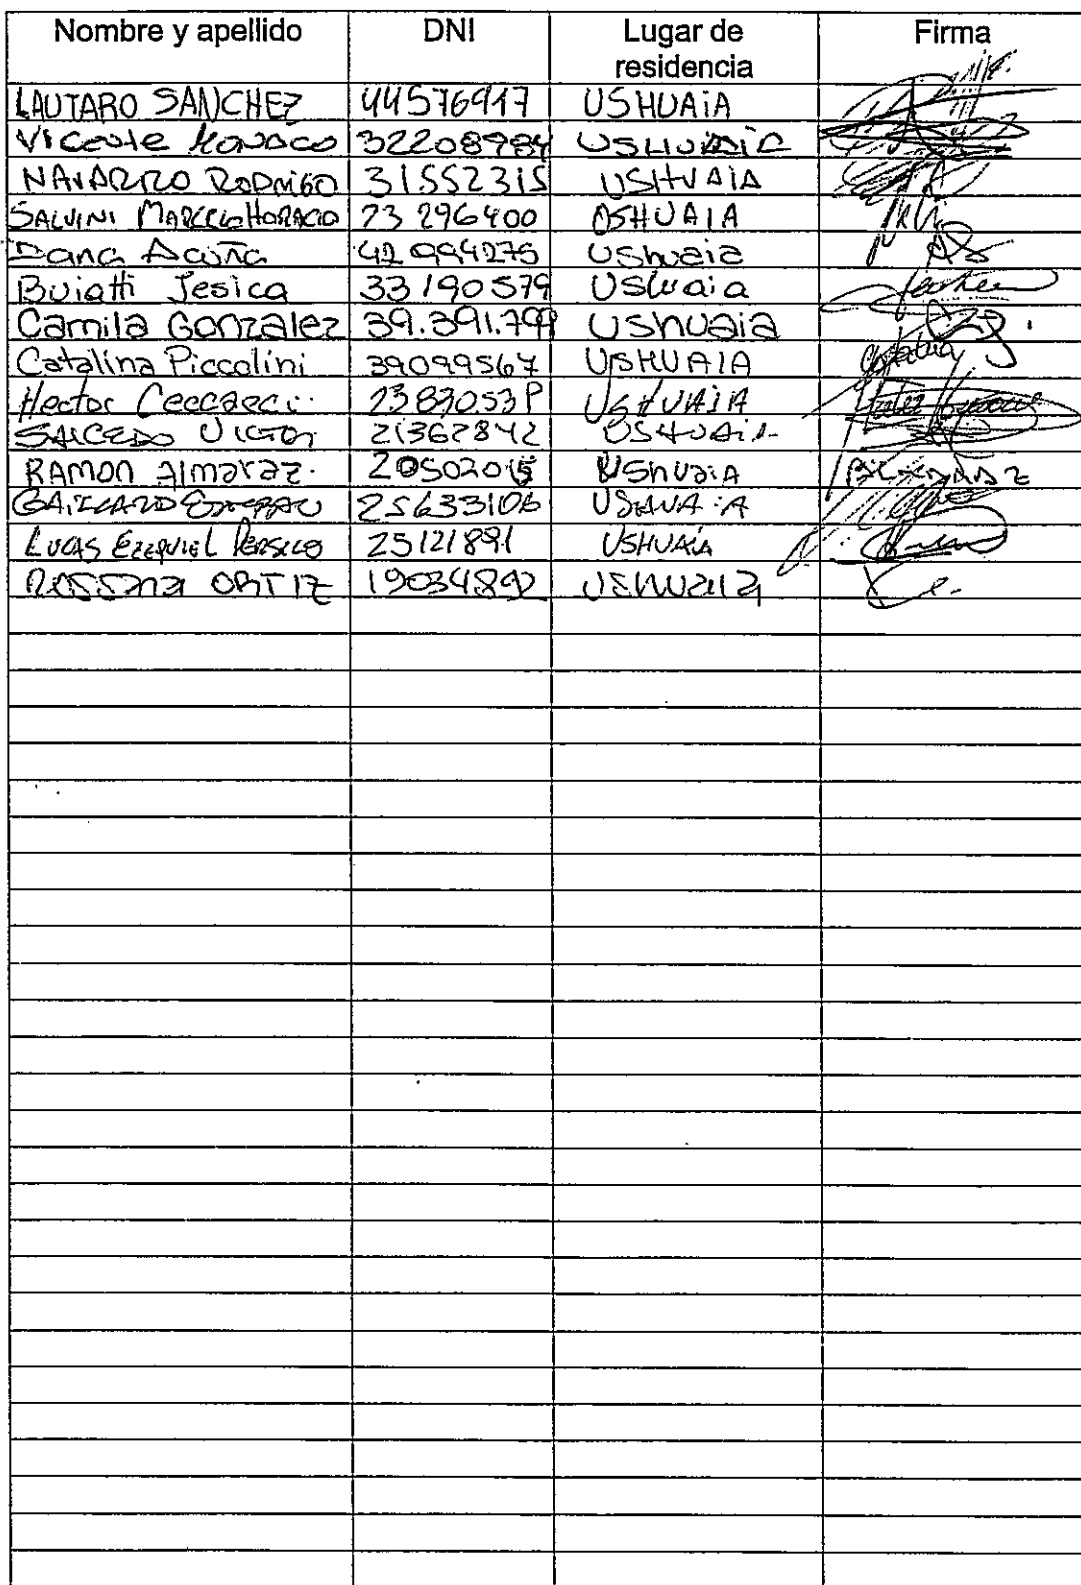 Nombre y apellido DNI Lugar de residencia Firma
LAUTARO SANCHEZ 44576947 USHUAiA
Vicente Monaco 32208984 USHUAiA
NAVARRO RODRIGO 31552315 USHUAIA
SALVINI MARCELO HORACIO 23 296400 USHUAIA
Dana Acuña 42994275 Ushuaia
Buiatti Jesica 33190579 Ushuaia
Camila Gonzalez 39.391.799 Ushuaia
Catalina Piccolini 39099567 USHUAIA
Hector USHUAIA
SALCEDO VICTOR 21367842 USHUAiA
RAMON Almaraz. 20502015 UShuaiA ALMARAZ
25633106 USHUAIA
LUCAS EZEQUIEL PERSICO 25121891 USHUAIA
ROSSANA ORTIZ 19034892 USHUAIA